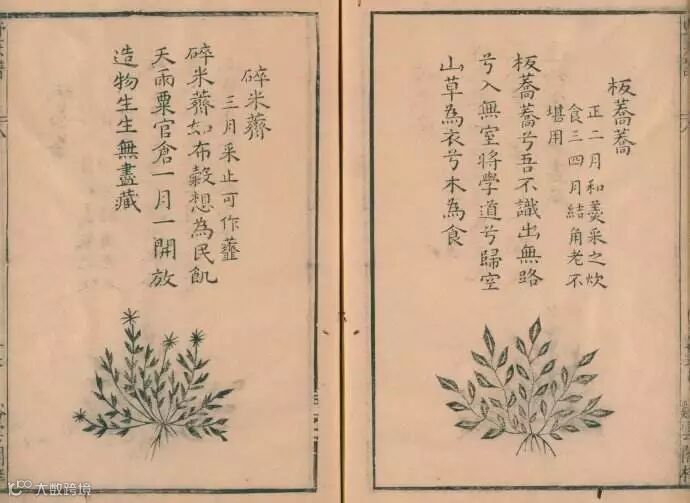 板蕎蕎
正二月和羹采之炊
食三四月結角老不
堪用
板蕎蕎兮吾不識出無路
兮入無室將學道兮歸空
山草為衣兮木為食
碎米薺
三月采止可作虀
碎米薺如布穀想為民飢
天雨粟官倉一月一開放
造物生生無盡藏
大数跨境